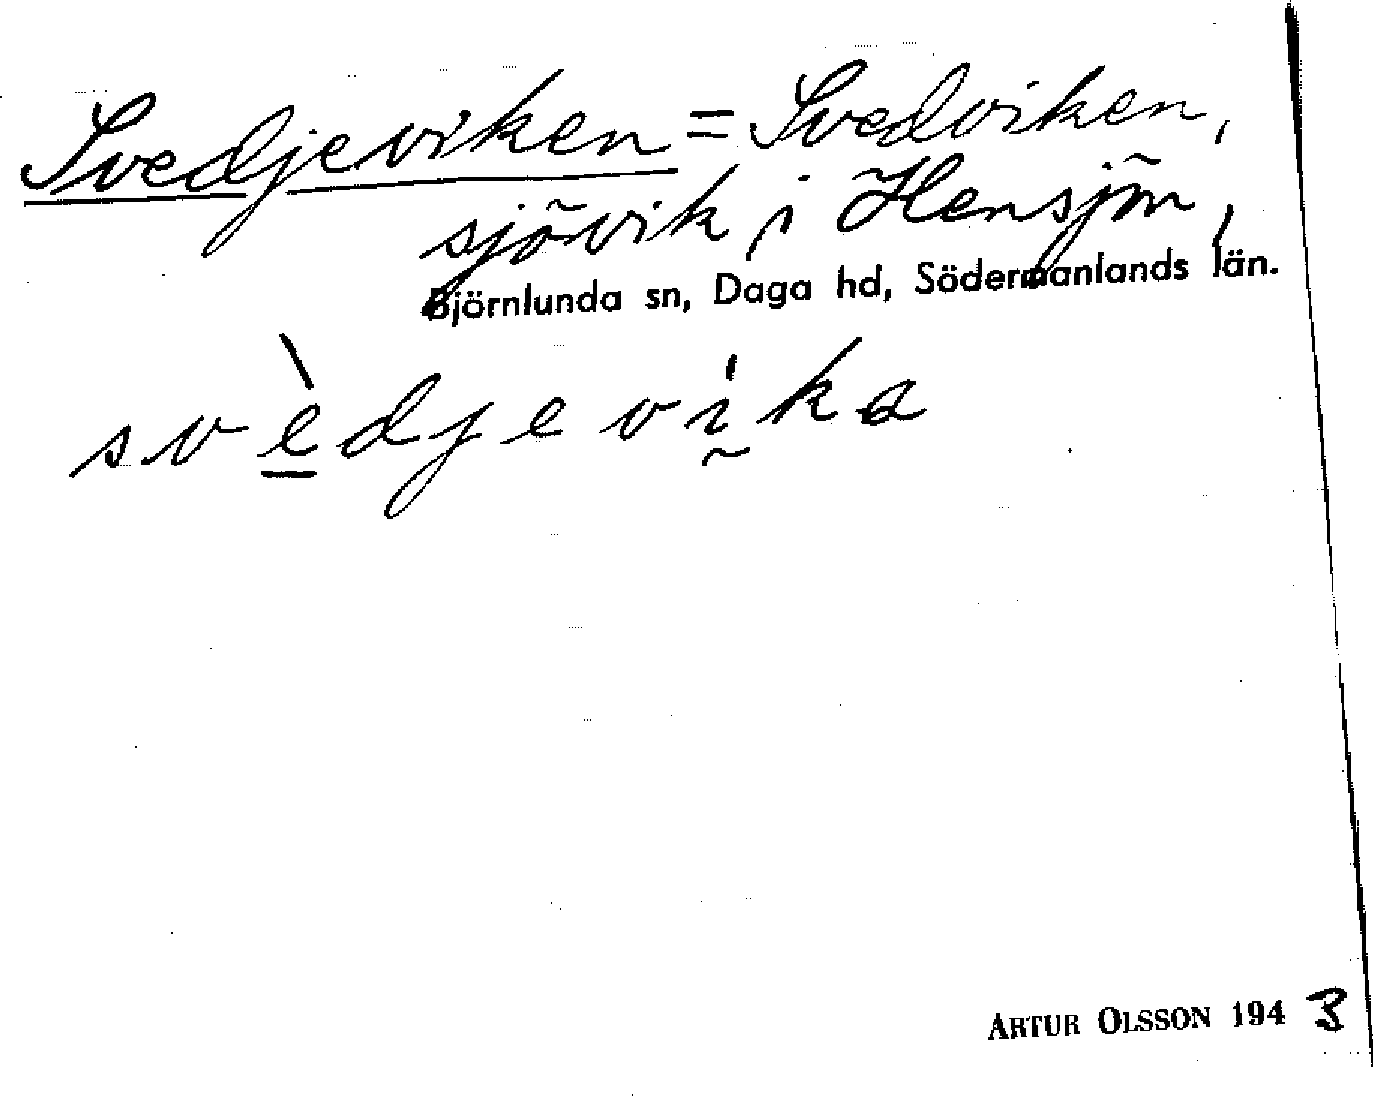 Svedjeviken = Svedviken,
sjövik i Hensjön,
Björnlunda sn, Daga hd, Södermanlands län.
svèdjevika
ARTUR OLSSON 1943